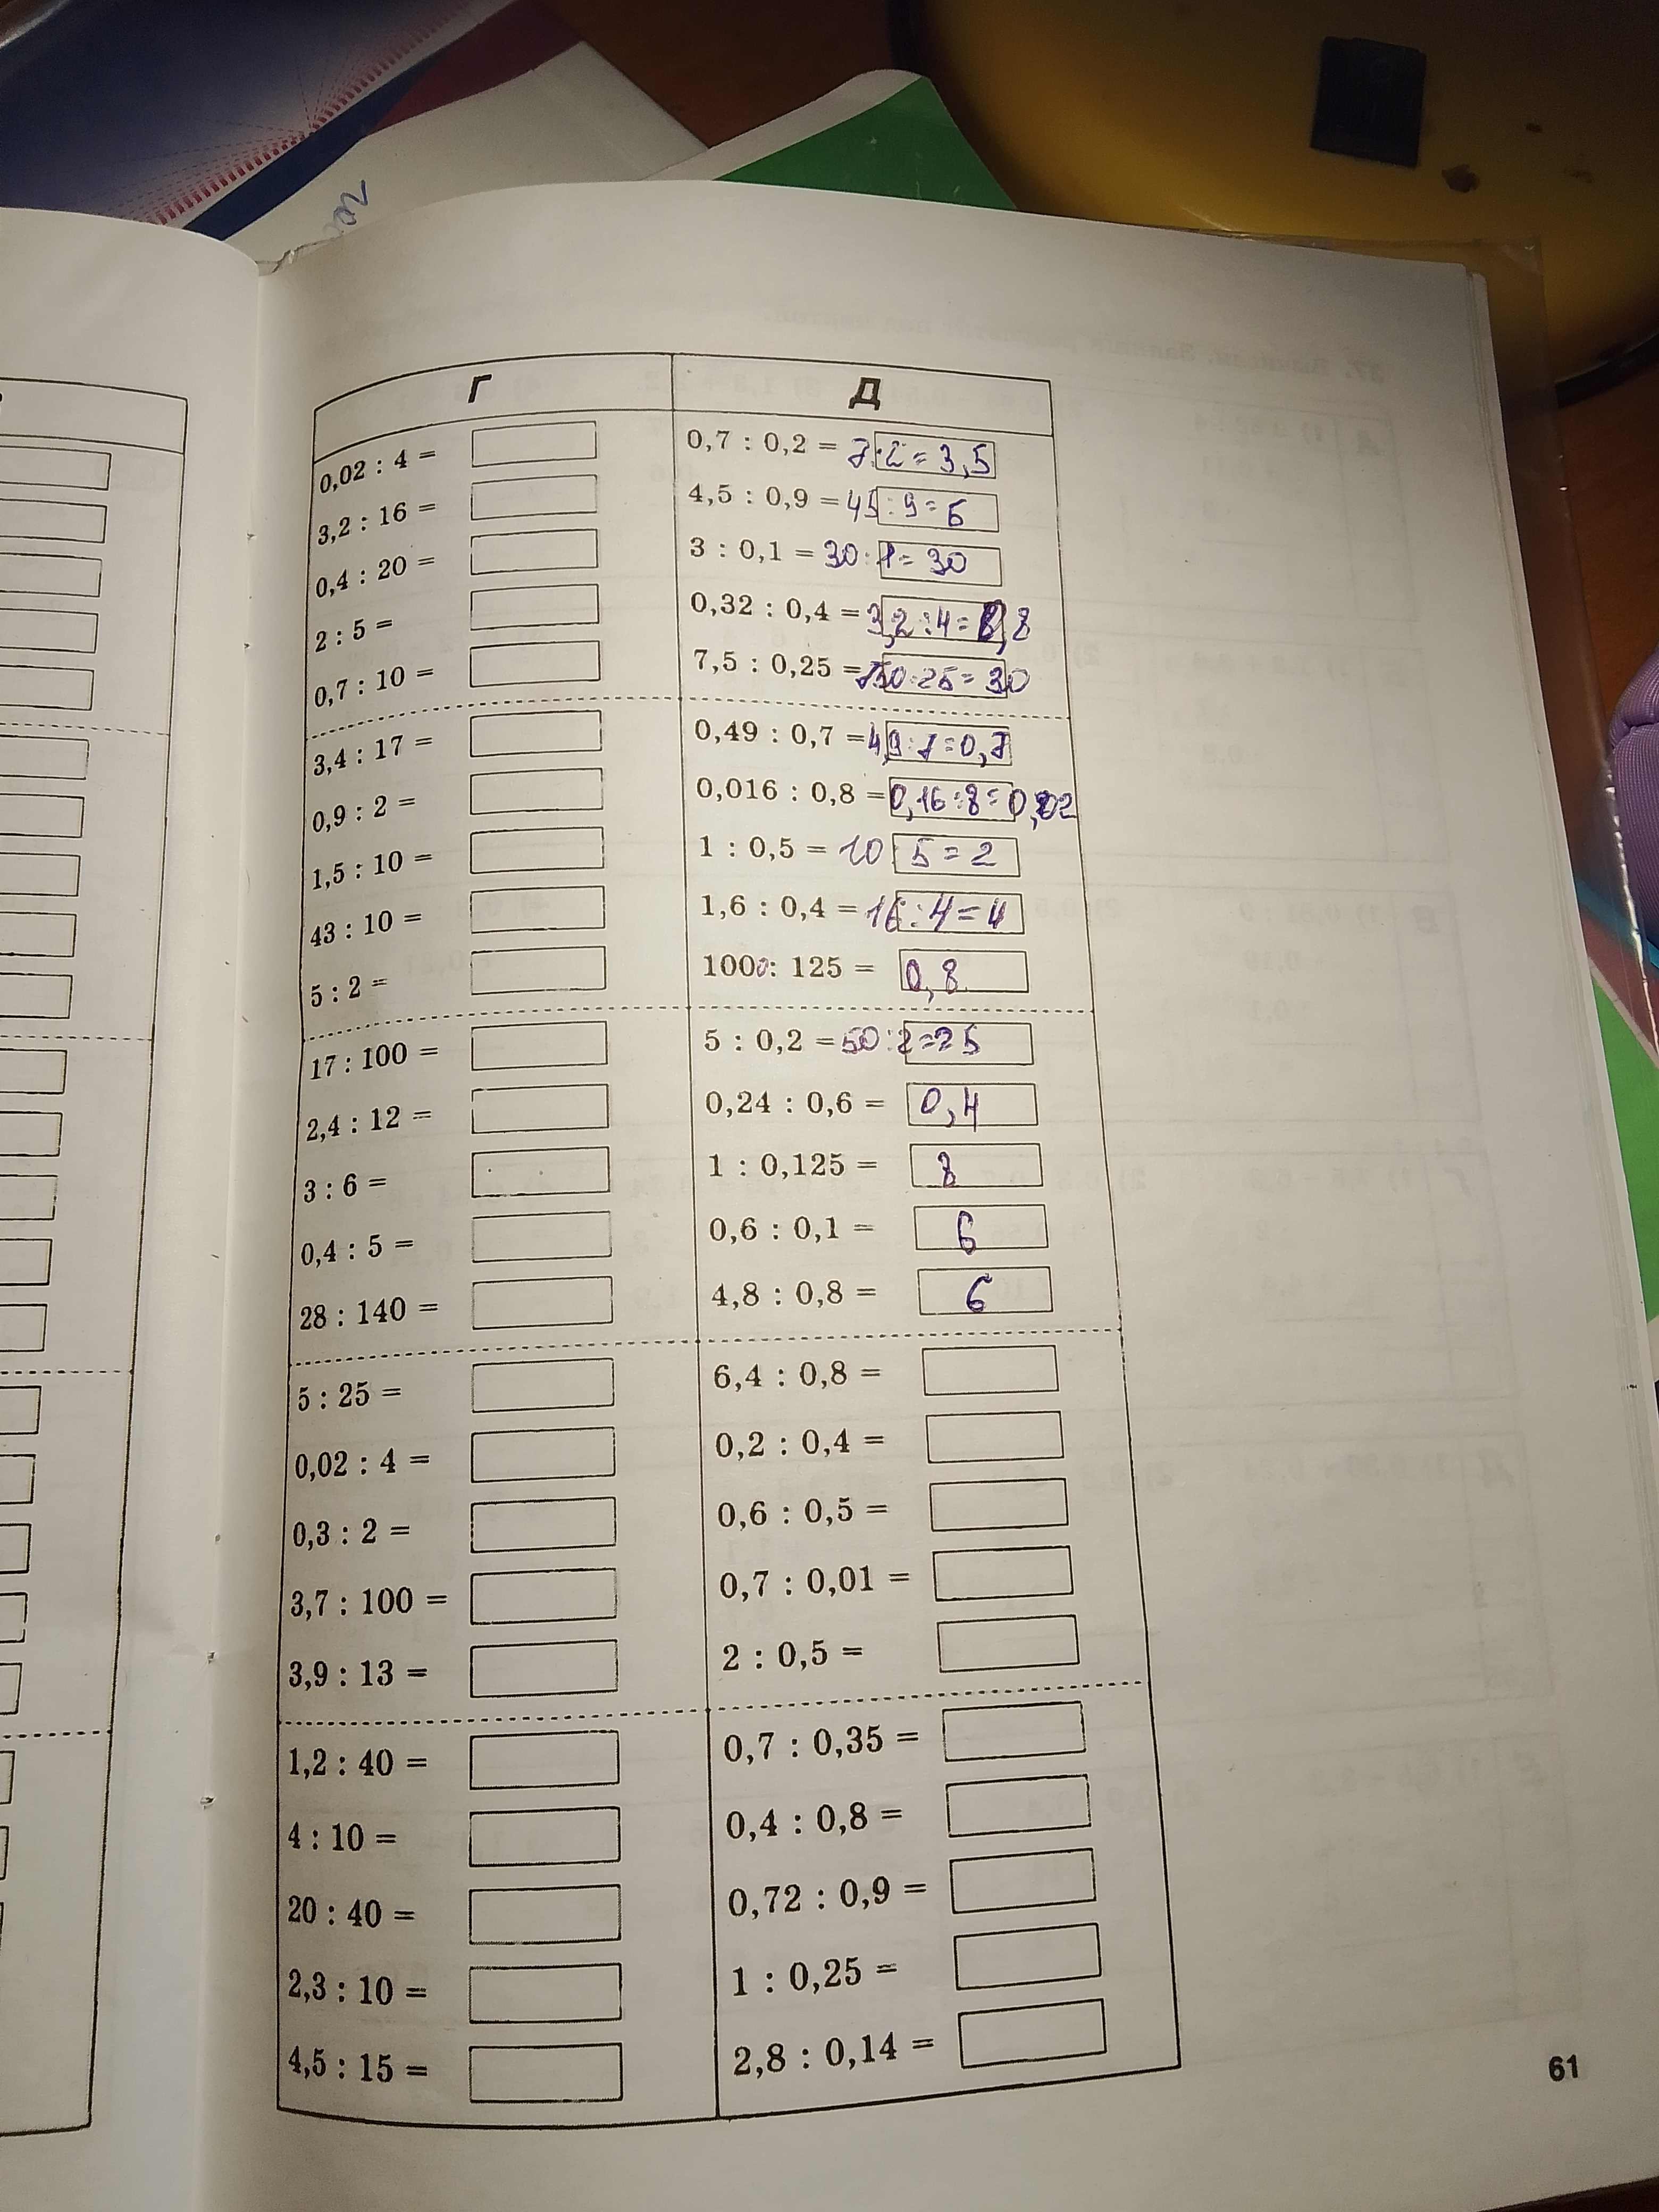 Г
0,02 : 4 =
3,2 : 16 =
0,4 : 20 =
2 : 5 =
0,7 : 10 =
3,4 : 17 =
0,9 : 2 =
1,5 : 10 =
43 : 10 =
5 : 2 =
17 : 100 =
2,4 : 12 =
3 : 6 =
0,4 : 5 =
28 : 140 =
5 : 25 =
0,02 : 4 =
0,3 : 2 =
3,7 : 100 =
3,9 : 13 =
1,2 : 40 =
4 : 10 =
20 : 40 =
2,3 : 10 =
4,5 : 15 =
Д
0,7 : 0,2 = 7:2 = 3,5
4,5 : 0,9 = 45 : 9 = 5
3 : 0,1 = 30 : 1 = 30
0,32 : 0,4 = 3,2 : 4 = 0,8
7,5 : 0,25 = 750:25 = 30
0,49 : 0,7 = 4,9 : 7 = 0,7
0,016 : 0,8 = 0,16 : 8 = 0,02
1 : 0,5 = 10 : 5 = 2
1,6 : 0,4 = 16 : 4 = 4
1000: 125 = 0,8
5 : 0,2 = 50 : 2 = 25
0,24 : 0,6 = 0,4
1 : 0,125 = 8
0,6 : 0,1 = 6
4,8 : 0,8 = 6
6,4 : 0,8 =
0,2 : 0,4 =
0,6 : 0,5 =
0,7 : 0,01 =
2 : 0,5 =
0,7 : 0,35 =
0,4 : 0,8 =
0,72 : 0,9 =
1 : 0,25 =
2,8 : 0,14 =
61